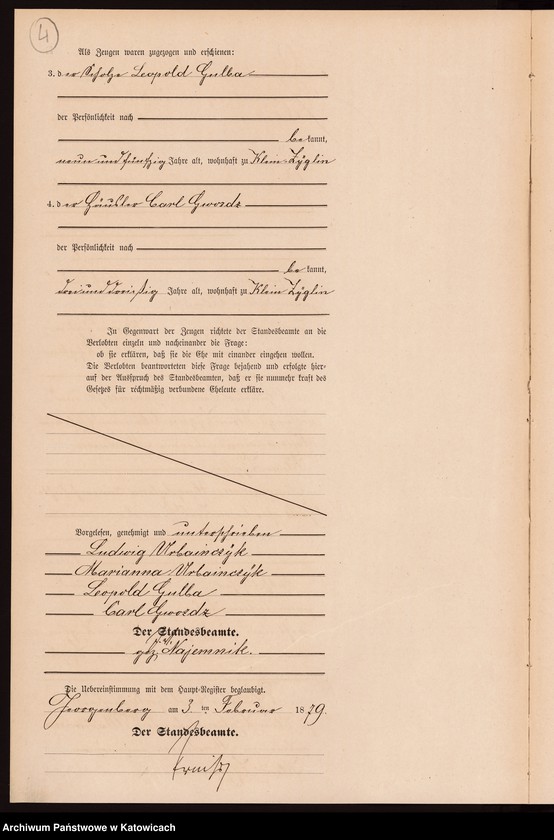 4
Als Zeugen waren zugezogen und erschienen:
3. der Scholze Leopold Gulba
der Persönlichkeit nach
bekannt,
neunundfünfzig Jahre alt, wohnhaft zu Klein Zyglin
4. der Häusler Carl Gwosdz
der Persönlichkeit nach
bekannt,
dreiunddreißig Jahre alt, wohnhaft zu Klein Zyglin
In Gegenwart der Zeugen richtete der Standesbeamte an die
Verlobten einzeln und nacheinander die Frage:
ob sie erklären, daß sie die Ehe mit einander eingehen wollen.
Die Verlobten beantworteten diese Frage bejahend und erfolgte hier-
auf der Ausspruch des Standesbeamten, daß er sie nunmehr kraft des
Gesetzes für rechtmäßig verbundene Eheleute erkläre.
Vorgelesen, genehmigt und unterschrieben
Ludwig Urbainczÿk
Marianna Urbainczÿk
Leopold Gulba
Carl Gwosdz
Der Standesbeamte.
gez. Najemnik.
Die Uebereinstimmung mit dem Haupt-Register beglaubigt.
Georgenberg am 3. ten Februar 1879.
Der Standesbeamte.
Archiwum Państwowe w Katowicach